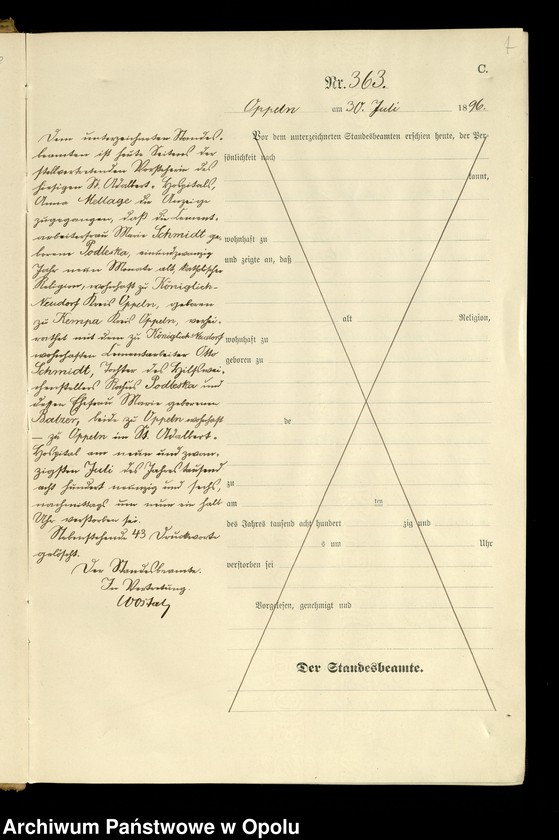 C.
Nr. 363.
Oppeln am 30. Juli 1896.
Dem unterzeichneten Standes-
beamten ist heute Seitens der
stellvertretenden Vorsteherin des
hiesigen St. Adalbert-Hospitals,
Anna Mettage die Anzeige
zugegangen, daß die Cement-
arbeiterfrau Marie Schmidt ge-
borene Podleska, einundzwanzig
Jahr neun Monate alt, katholischer
Religion, wohnhaft zu Königlich-
Neudorf Kreis Oppeln, geboren
zu Kempa Kreis Oppeln, verhei-
rathet mit dem zu Königlich Neudorf
wohnhaften Cementarbeiter Otto
Schmidt, Tochter des Hilfswei-
chenstellers Podleska und
dessen Ehefrau Marie geborenen
Balzer, beide zu Oppeln wohnhaft
— zu Oppeln im St. Adalbert-
Hospital am neun und zwan-
zigsten Juli des Jahres tausend
acht hundert neunzig und sechs,
nachmittags um neun ein halb
Uhr verstorben sei.
Nebenstehende 43 Druckworte
gelöscht.
Der Standesbeamte.
In Vertretung.
Wostal
Vor dem unterzeichneten Standesbeamten erschien heute, der Per-
sönlichkeit nach
kannt,
wohnhaft zu
und zeigte an, daß
alt Religion,
wohnhaft zu
geboren zu
de
zu
am ten
des Jahres tausend acht hundert zig und
s um Uhr
verstorben sei
Vorgelesen, genehmigt und
Der Standesbeamte.
Archiwum Państwowe w Opolu